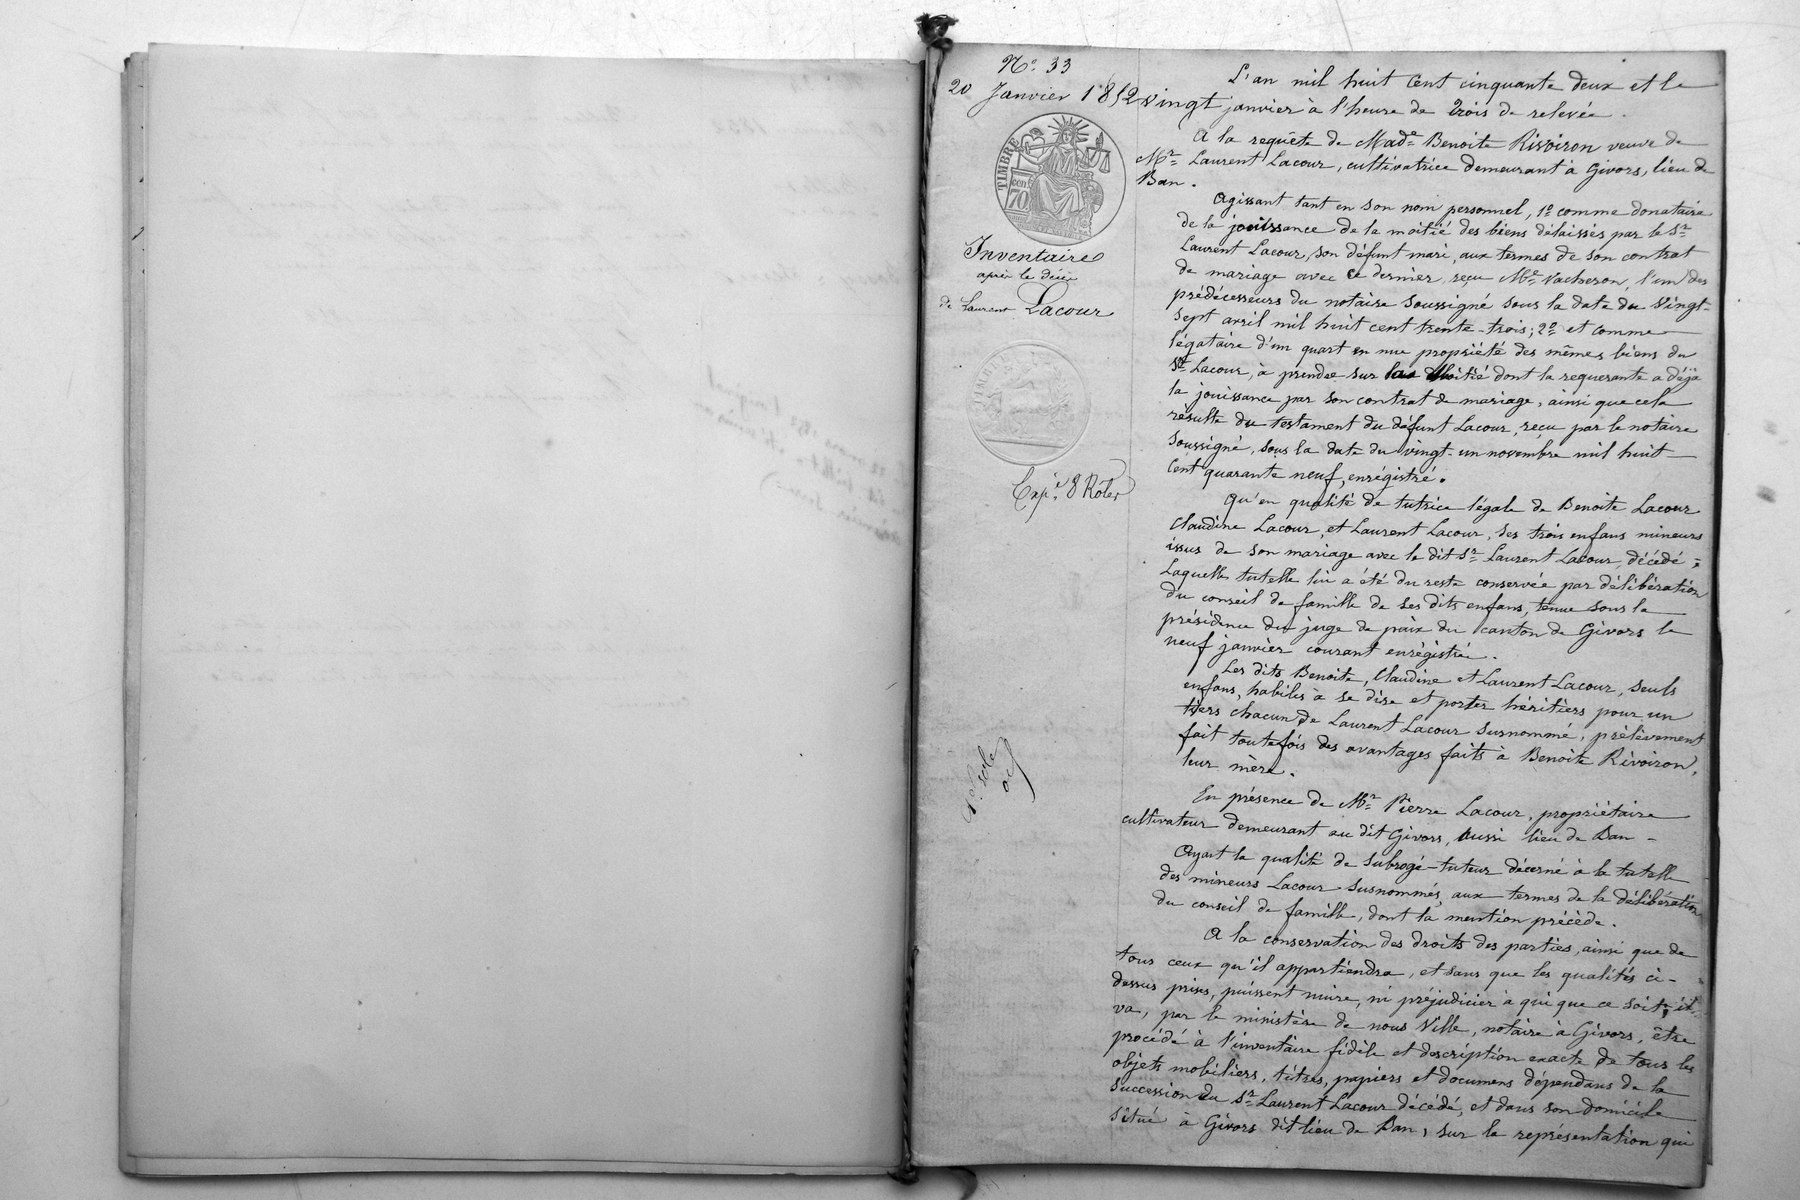 Nº 33
20 Janvier 1852
TIMBRE
cen 70
Inventaire
après le décès
de Laurent Lacour
TIMBRE
Expé. 8 Rôles
1er. role
L'an mil huit cent cinquante deux et le
vingt janvier à l'heure de trois de relevée.
A la requête de Made Benoite Rivoiron veuve de
Mr Laurent Lacour, cultivatrice demeurant à Givors, lieu de
Ban.
Agissant tant en son nom personnel, 1º comme donataire
de la jouissance de la moitié des biens délaissés par le Sr
Laurent Lacour, son défunt mari, aux termes de son contrat
de mariage avec ce dernier, reçu Me Vacheron, l'un des
prédécesseurs du notaire soussigné sous la date du vingt-
sept avril mil huit cent trente-trois; 2º et comme
légataire d'un quart en nue propriété des mêmes biens du
Sr Lacour, à prendre sur la moitié dont la requerante a déjà
la jouissance par son contrat de mariage, ainsi que cela
résulte du testament du défunt Lacour, reçu par le notaire
soussigné, sous la date du vingt-un novembre mil huit
cent quarante neuf, enrégistré.
Qu'en qualité de tutrice légale de Benoite Lacour
Claudine Lacour, et Laurent Lacour, ses trois enfans mineurs
issus de son mariage avec le dit Sr Laurent Lacour, décédé;
Laquelle tutelle lui a été du reste conservée par délibération
du conseil de famille de ses dits enfans, tenue sous la
présidence du juge de paix du canton de Givors le
neuf janvier courant enrégistrée.
Les dits Benoite, Claudine et Laurent Lacour, seuls
enfans, habiles à se dire et porter héritiers pour un
tiers chacun de Laurent Lacour susnommé, prélèvement
fait toutefois des avantages faits à Benoite Rivoiron,
leur mère.
En présence de Mr Pierre Lacour, propriétaire
cultivateur demeurant au dit Givors, aussi lieu de Ban -
Ayant la qualité de subrogé-tuteur décerné à la tutelle
des mineurs Lacour susnommés, aux termes de la délibération
du conseil de famille, dont la mention précède.
A la conservation des droits des parties, ainsi que de
tous ceux qu'il appartiendra, et sans que les qualités ci-
dessus prises, puissent nuire, ni préjudicier à qui que ce soit, il
va, par le ministère de nous Ville, notaire à Givors, être
procédé à l'inventaire fidèle et description exacte de tous les
objets mobiliers, titres, papiers et documens dépendans de la
succession du Sr Laurent Lacour décédé, et dans son domicile
situé à Givors dit lieu de Ban, sur la représentation qui